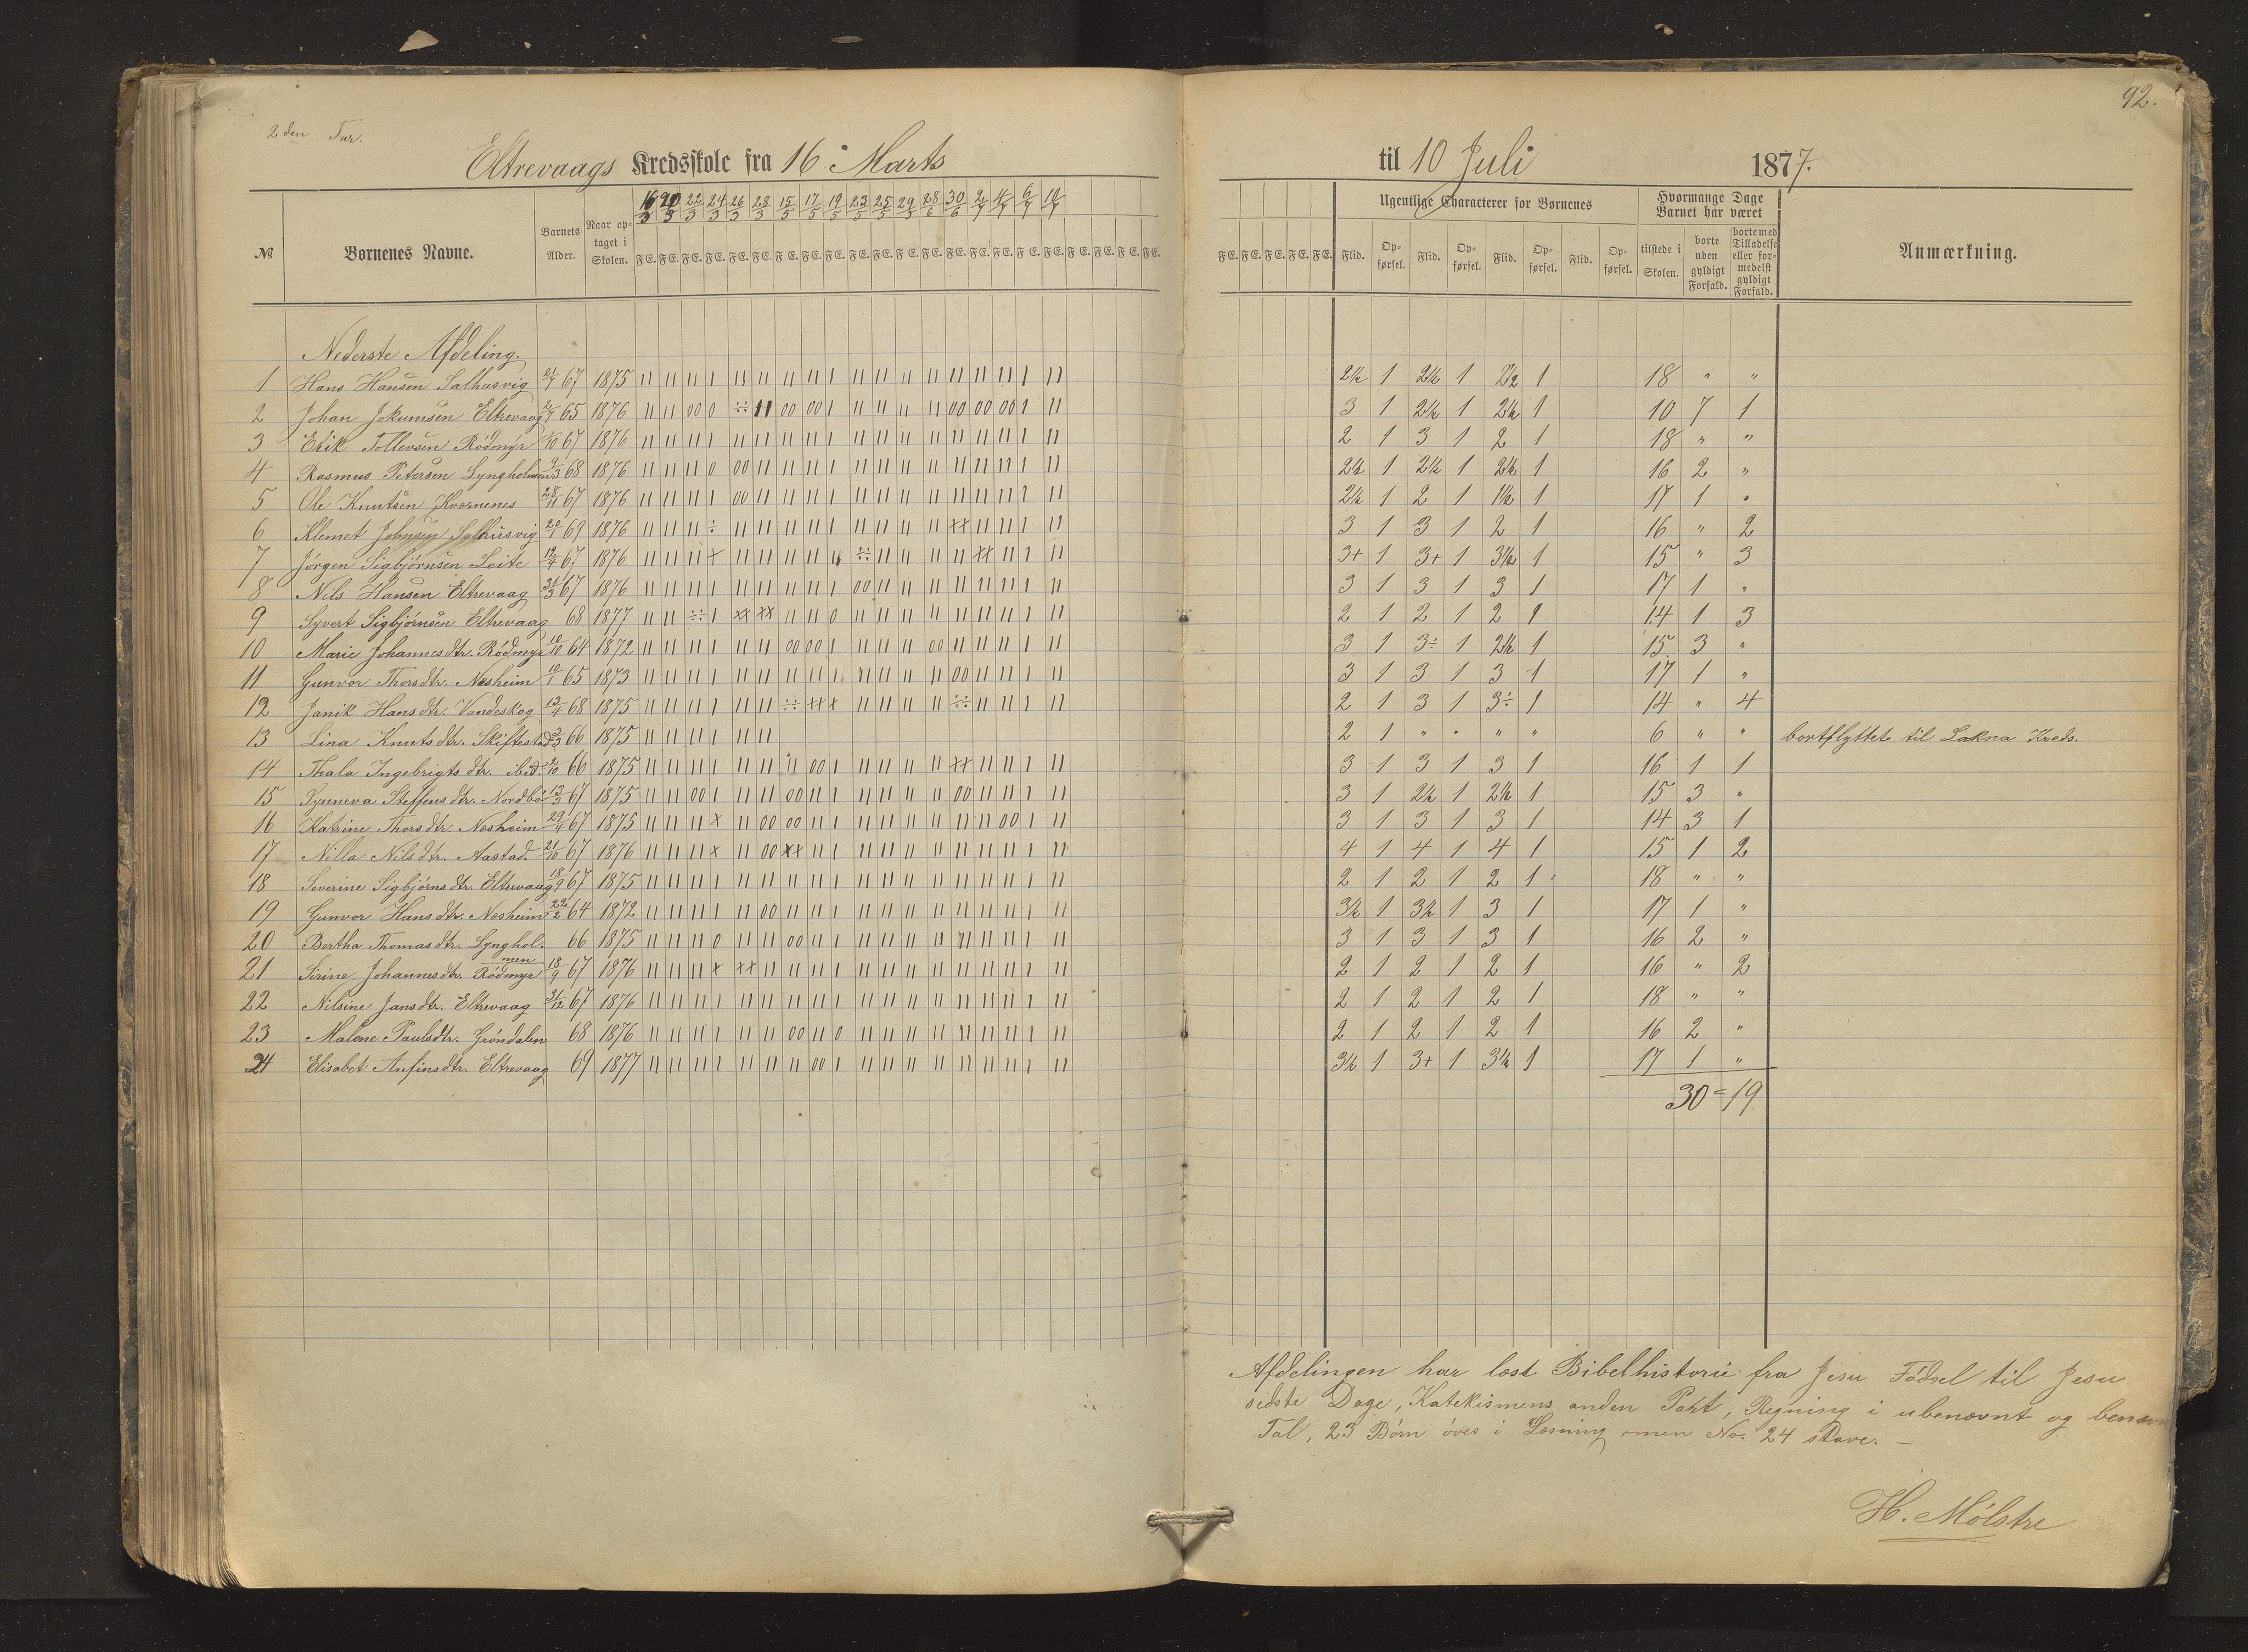 92.
2den Tur.
Eltrevaags Kredsskole fra 16 Marts til 10 Juli 1877.
№ Børnenes Navne. Barnets Alder. Naar optaget i Skolen. 16/3 20/3 22/3 24/3 26/3 28/3 15/5 17/5 19/5 23/5 25/5 29/5 28/6 30/6 2/7 4/7 6/7 10/7
Ugentlige Characterer for Børnenes Hvormange Dage Barnet har været Anmærkning.
Flid. Opførsel. Flid. Opførsel. Flid. Opførsel. Flid. Opførsel. tilstede i Skolen. borte uden gyldigt Forfald. borte med Tilladelse eller formedelst gyldigt Forfald.
Nederste Afdeling.
1 Hans Hansen Salhusvig 67 1875 2½ 1 2½ 1 2½ 1 18 " "
2 Johan Jokumsen Eltrevaag 65 1876 3 1 2½ 1 2½ 1 10 7 1
3 Erik Tollevsen Rødmyr 67 1876 2 1 3 1 2 1 18 " "
4 Rasmus Petersen Lyngholmen 68 1876 2½ 1 2½ 1 2½ 1 16 2 "
5 Ole Knutsen Kvernenes 28/11 67 1876 2½ 1 2 1 1½ 1 17 1 "
6 Klemet Johnsen Salhusvig 69 1876 3 1 3 1 2 1 16 " 2
7 Jørgen Sigbjørnsen Leite 67 1876 3+ 1 3+ 1 3½ 1 15 " 3
8 Nils Hansen Eltrevaag 31/3 67 1876 3 1 3 1 3 1 17 1 "
9 Syvert Sigbjørnsen Eltrevaag 68 1877 2 1 2 1 2 1 14 1 3
10 Marie Johannesdtr. Rødmyr 10/10 64 1872 3 1 3÷ 1 2½ 1 15 3 "
11 Gunvor Thorsdtr. Nesheim 65 1873 3 1 3 1 3 1 17 1 "
12 Janik Hansdtr. Vandeskog 68 1875 2 1 3 1 3÷ 1 14 " 4
13 Lina Knutsdtr. Skiftestad 66 1875 2 1 " " " " 6 " " bortflyttet til Lakna Kreds.
14 Thala Ingebrigtsdtr. ibid. 66 1875 3 1 3 1 3 1 16 1 1
15 Synneva Steffensdtr. Nordbø 13/3 67 1875 3 1 2½ 1 2½ 1 15 3 "
16 Katrine Thorsdtr. Nesheim 29/4 67 1875 3 1 3 1 3 1 14 3 1
17 Nilla Nilsdtr. Aastad. 21/10 67 1876 4 1 4 1 4 1 15 1 2
18 Severine Sigbjørnsdtr. Eltrevaag 18/9 67 1875 2 1 2 1 2 1 18 " "
19 Gunvor Hansdtr. Nesheim 22/2 64 1872 3½ 1 3½ 1 3 1 17 1 "
20 Bertha Thomasdtr. Lynghol- 66 1875 3 1 3 1 3 1 16 2 "
men
21 Sirine Johannesdtr. Rødmyr 18/9 67 1876 2 1 2 1 2 1 16 " 2
22 Nilsine Jansdtr. Eltrevaag 31/12 67 1876 2 1 2 1 2 1 18 " "
23 Malene Paulsdtr. Grøndalen 68 1876 2 1 2 1 2 1 16 2 "
24 Elisabet Anfinsdtr. Eltrevaag 69 1877 3½ 1 3+ 1 3½ 1 17 1 "
30 = 19
Afdelingen har læst Bibelhistorie fra Jesu Fødsel til Jesu
sidste Dage, Katekismens anden Part, Regning i ubenævnt og benævn
Tal, 23 Børn øves i Læsning men No. 24 stave. –
H. Mølstre